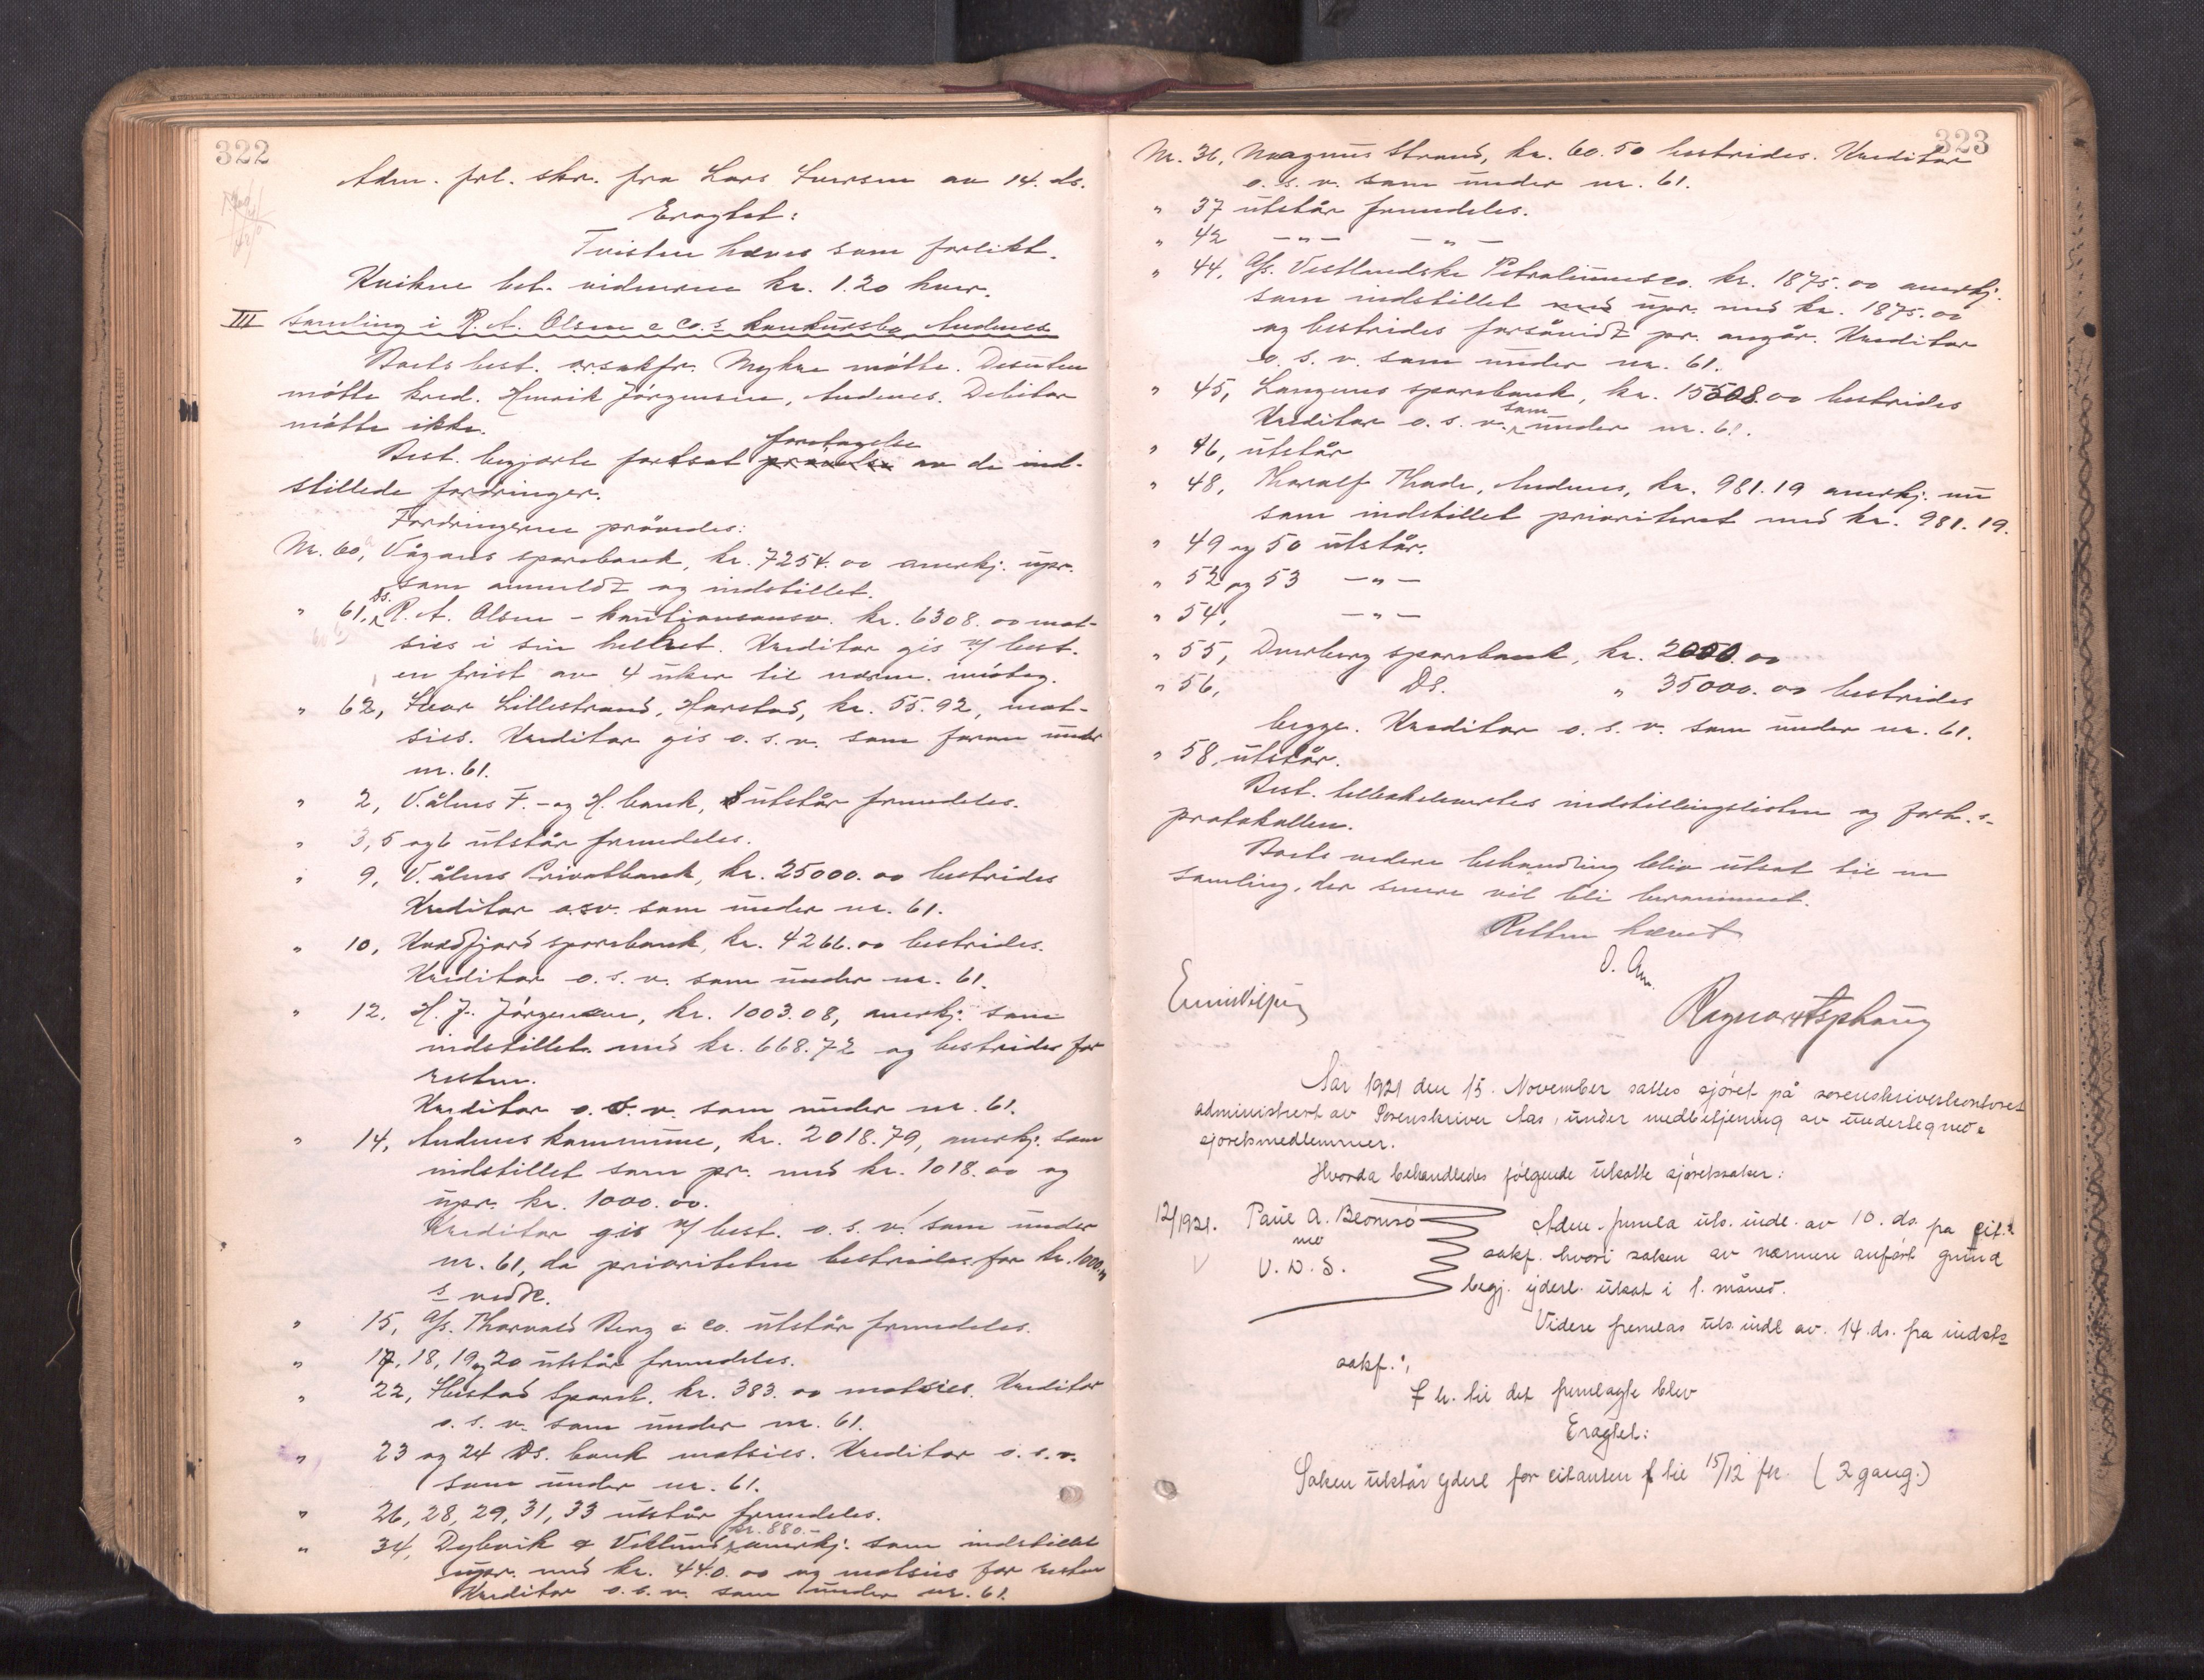 322
Adm. frl. skr. fra Lars Iversen av 14. ds.
Eragtet:
Tvisten hæves som forlikt.
Kvikne bet. vidnerne kr. 1.20 hver.
III Samling i R. A. Olsen & Co.s konkursbo, Andenes
Boets best. o.r.sakfr. Myhre møtte. Desuten
møtte kred. Henrik Jørgensen, Andenes. Debitor
møtte ikke.
foretagelse
Best. begjærte fortsat prøvelse av de ind-
stillede fordringer.
Fordringerne prøvedes:
Nr. 60, Vågans sparebank, kr. 7254.00 anerkj. upr.
som anmeldt og indstillet.
" 61, Ds. R. A. Olsen - kautionsansv. kr. 6308.00 mot-
sies i sin helhet. Kreditor gis v/ best.
en frist av 4 uker til nærm. moteg.
" 62, Ivar Lillestrand, Harstad, kr. 55.92, mot-
sies. Kreditor gis o. s. v. som foran under
nr. 61.
" 2, V.ålens F.- og H. bank, utstår fremdeles.
" 3, 5 og 6 utstår fremdeles.
" 9, V.ålens Privatbank, kr. 25000.00 bestrides
Kreditor o.s.v. som under nr. 61.
" 10, Kvædfjord sparebank, kr. 4266.00 bestrides.
Kreditor o. s. v. som under nr. 61.
" 12. H. J. Jørgensen, kr. 1003.08, anerkj. som
indstillet med kr. 668.72 og bestrides for
resten.
Kreditor o. s. v. som under nr. 61.
" 14, Andenes kommune, kr. 2018.79, anerkj. som
indstillet som pr. med kr. 1018.00 og
upr. kr. 1000.00.
Kreditor gis v/ best. o. s. v. som under
nr. 61, da prioriteten bestrides for kr. 1000.00
s vedk.
" 15, A/s. Thorvald Berg & Co. utstår fremdeles.
" 17, 18, 19 og 20 utstår fremdeles.
" 22, Ibestad Spareb. kr. 383.00 motsies. Kreditor
o. s. v. som under nr. 61.
" 23 og 24 Ds. bank motsies. Kreditor o. s. v.
som under nr. 61.
" 26, 28, 29, 31, 33 utstår fremdeles.
kr. 880.-
" 34, Dybvik & Veklund, anerkj. som indstillet
upr. med kr. 440.00 og motsies for resten
Kreditor o. s. v. som under nr. 61.
323
Nr. 36, Magnus Strand, kr. 60.50 bestrides. Kreditor
o. s. v. som under nr. 61.
" 37 utstår fremdeles.
" 42 - " - - " -
" 44, A/s. Vestlandske Petroleumsco. kr. 1875.00 anerkj.
som indstillet med upr. med kr. 1875.00
og bestrides forsåvidt pr. angår. Kreditor
o. s. v. som under nr. 61.
" 45, Langenes sparebank, kr. 15508.00 bestrides
Kreditor o. s. v. som under nr. 61.
" 46, utstår
" 48, Tharalf Thode, Andenes, kr. 981.19 anerkj. nu
som indstillet prioriteret med kr. 981.19.
" 49 og 50 utstår.
" 52 og 53 - " -
" 54, - " -
" 55, Dverberg sparebank, kr. 2000.00
" 56, Ds. " 35000.00 bestrides
begge. Kreditor o. s. v. som under nr. 61.
" 58, utstår.
Best. tilbakelevertes indstillingslisten og forh.s-
protokollen.
Boets videre behandling blir utsat til en
samling, der senere vil bli berammet.
Retten hævet
O. Aas.
Ragnar Asphaug
Aar 1921 den 15. November sattes sjøret på sorenskriverkontoret
administrert av Sorenskriver Aas, under medbetjening av undertegnede
sjøretsmedlemmer.
Hvorda behandledes følgende utsatte sjøretssaker:
12/1921. Paul A. Bromsø
mo
V. D. S.
Adm. fremla uts. indl. av 10. ds. fra cit.s
sakf. hvori saken av nærmere anført grund
begj. yderl. utsat i 1. måned.
Videre fremlas uts. indl av. 14. ds. fra indst.s
sakf.;
I h. til det fremlagte blev
Eragtet:
Saken utstår yderl for citanten til 15/12 fk. (2 gang.)